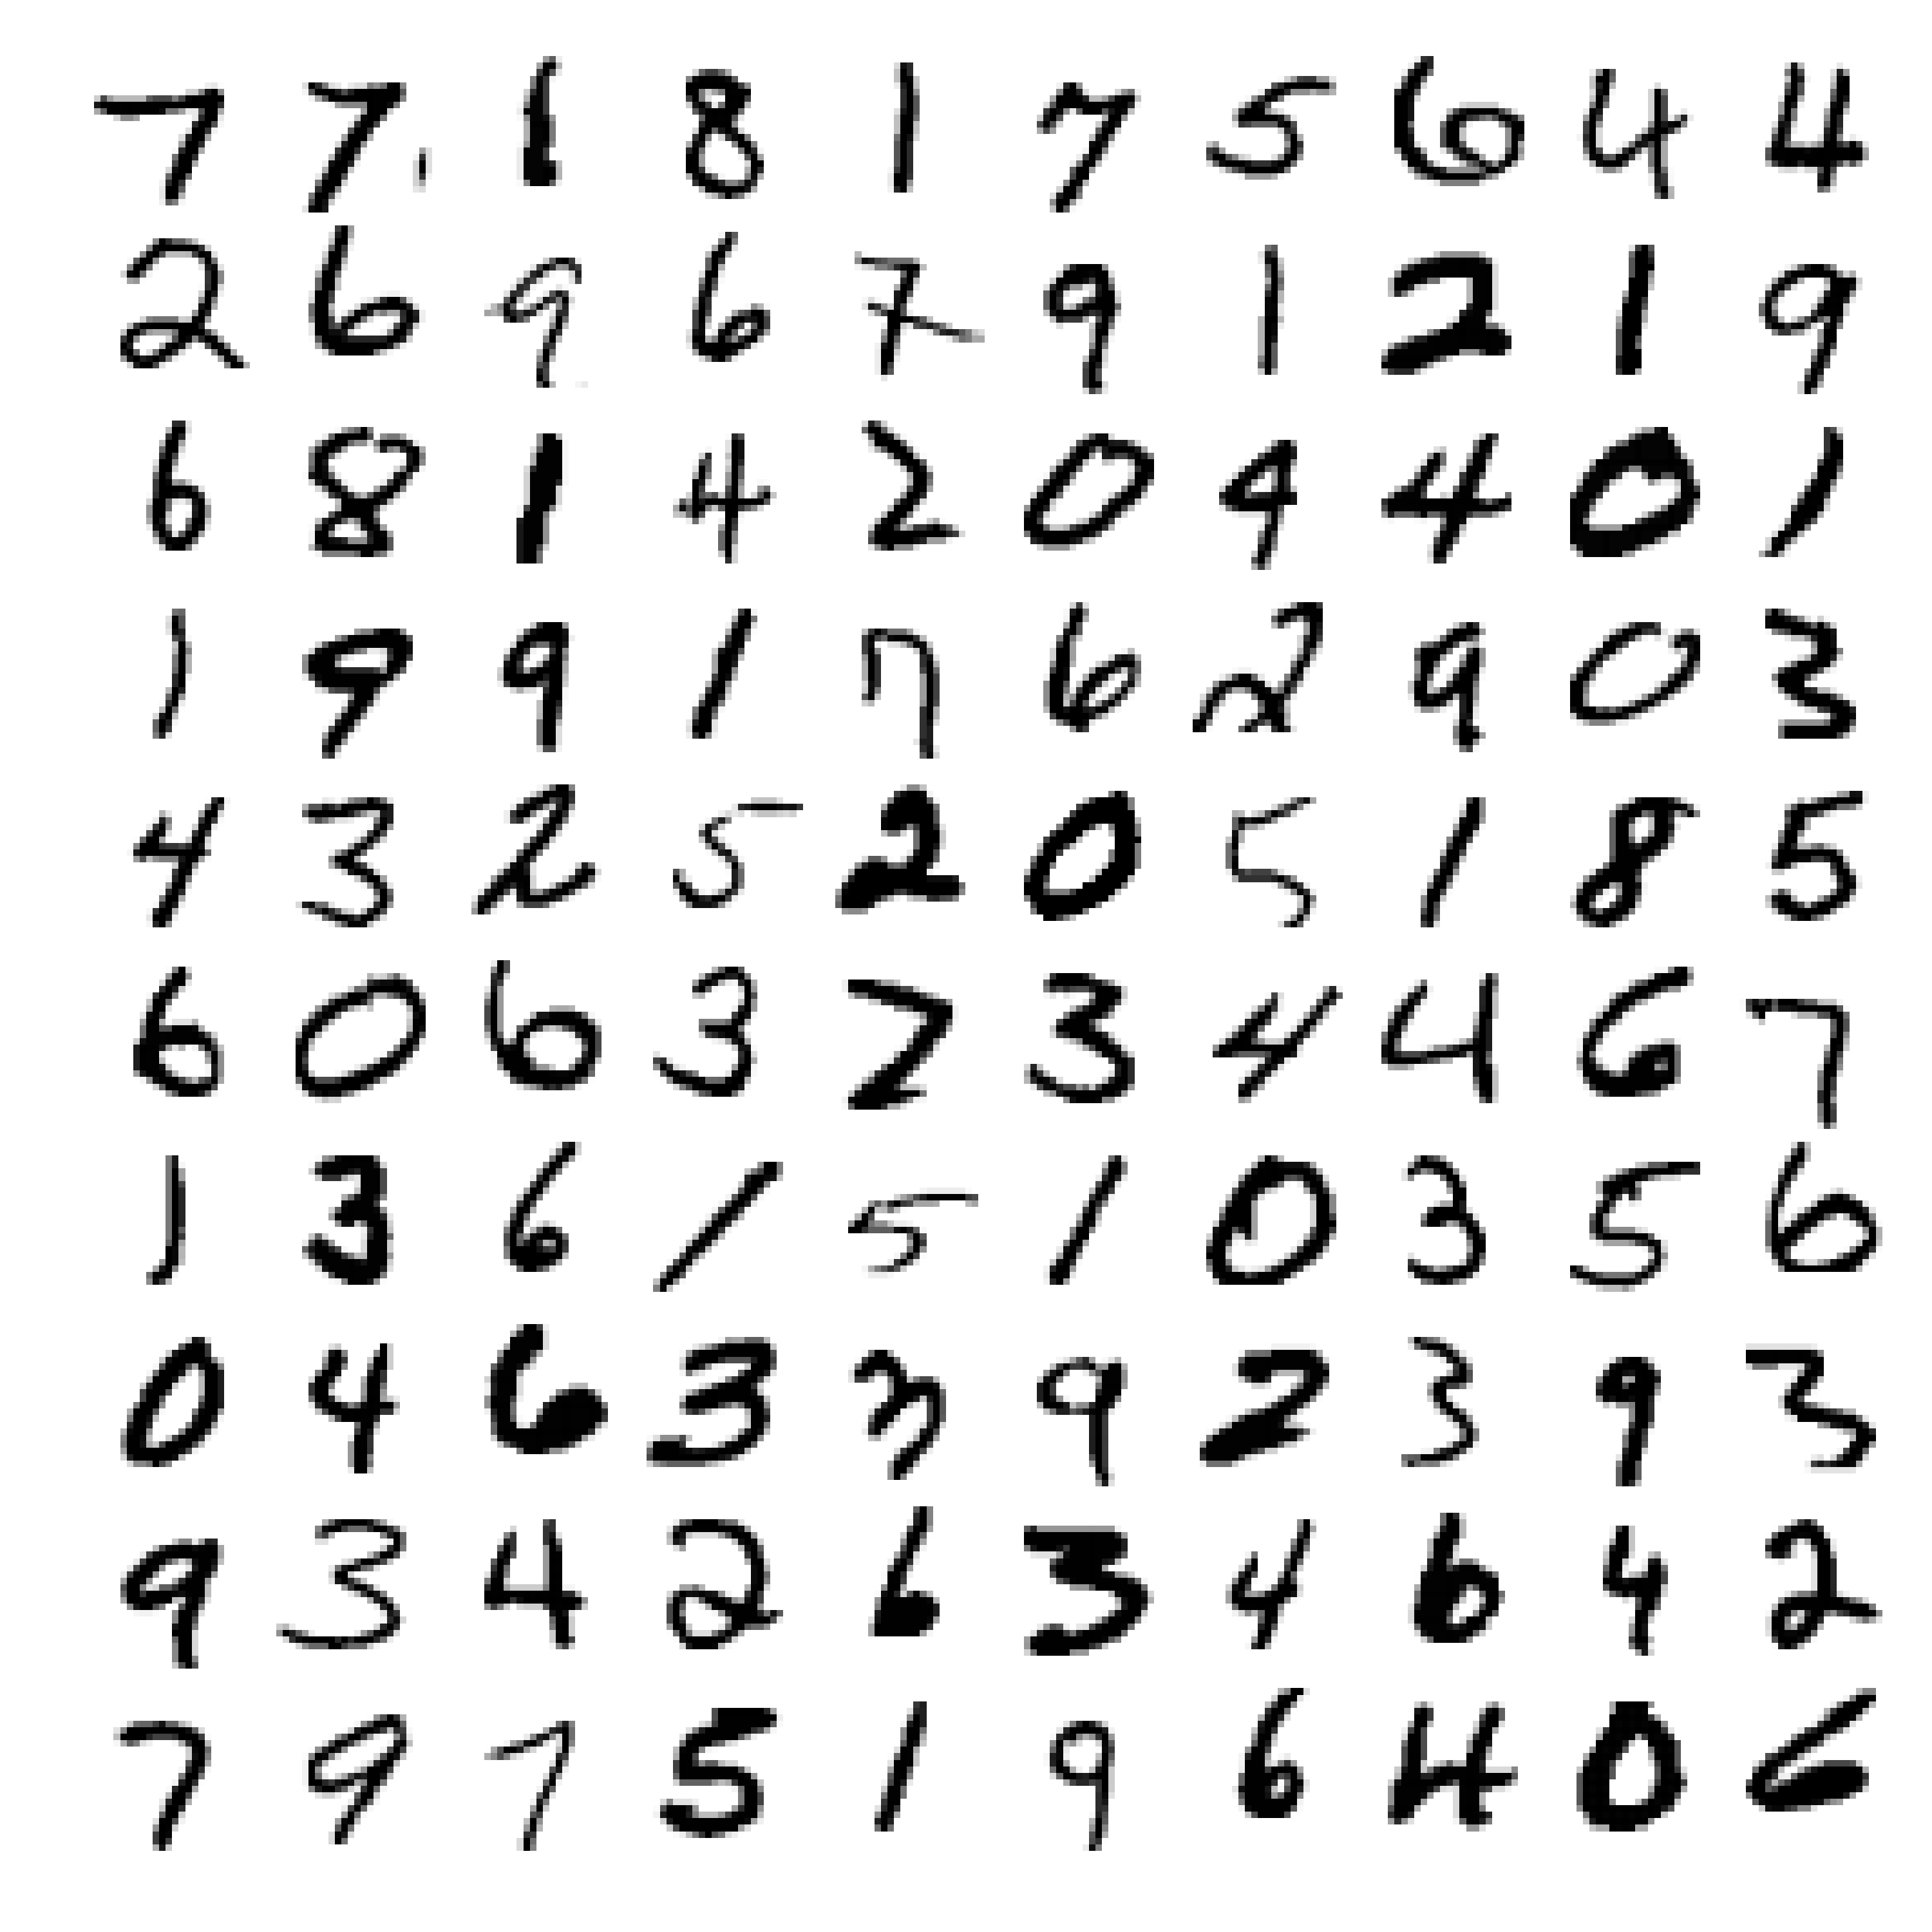 7 7 1 8 1 7 5 6 4 4
2 6 9 6 7 9 1 2 1 9
6 8 1 4 2 0 9 4 0 1
1 9 9 1 7 6 2 9 0 3
4 3 2 5 2 0 5 1 8 5
6 0 6 3 2 3 4 4 6 7
1 3 6 1 5 1 0 3 5 6
0 4 6 3 3 9 2 3 9 3
9 3 4 2 6 3 4 6 4 2
7 9 7 5 1 9 6 4 0 6